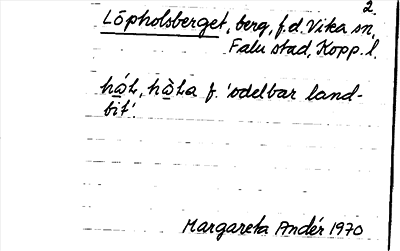 2.
Löpholsberget, berg, f.d. Vika sn,
Falu stad, Kopp. l.
hó̲L, hò̲La f. 'odelbar land-
bit'.
Margareta Andér 1970